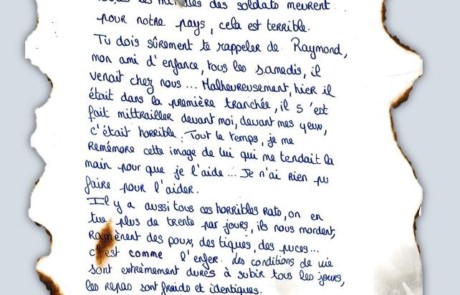 des soldats meurent
pour notre pays, cela est terrible.
Tu dois sûrement te rappeler de Raymond,
mon ami d'enfance, tous les samedis, il
venait chez nous... Malheureusement, hier il
était dans la première tranchée, il s'est
fait mittrailler devant moi, devant mes yeux,
c'était horrible. Tout le temps, je me
remémore cette image de lui qui me tendait la
main pour que je l'aide... Je n'ai rien pu
faire pour l'aider.
Il y a aussi tous ces horribles rats, on en
tue plus de trente par jours, ils nous mordent,
ramènent des poux, des tiques, des puces...
c'est comme l'enfer. Les conditions de vie
sont extrêmement dures à subir tous les jours,
les repas sont froids et identiques.